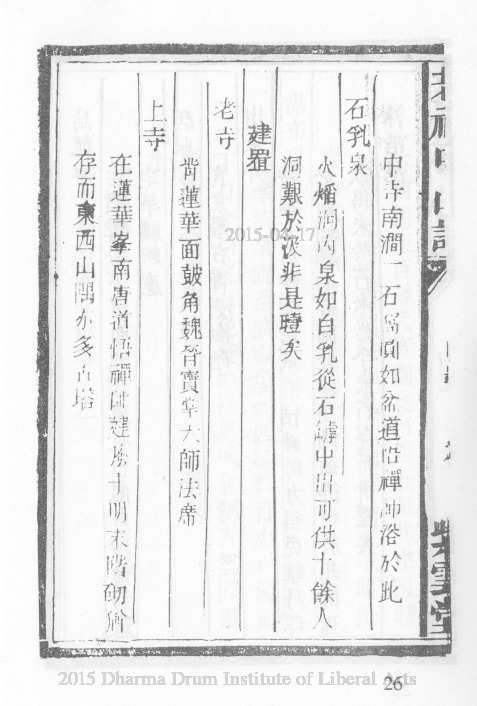 中寺南澗一石窩圓如盆道悟禪師浴於此
石乳泉
火爁洞內泉如白乳從石罅中出可供十餘人
洞艱於汲非是曀矣
建置
老寺
背蓮華面皷角魏晉寶掌大師法席
上寺
在蓮華峯南唐道悟禪師建塲于明末階砌猶
存而東西山隅亦多古塔
紫雲堂
2015-04-17
2015 Dharma Drum Institute of Liberal Arts
26